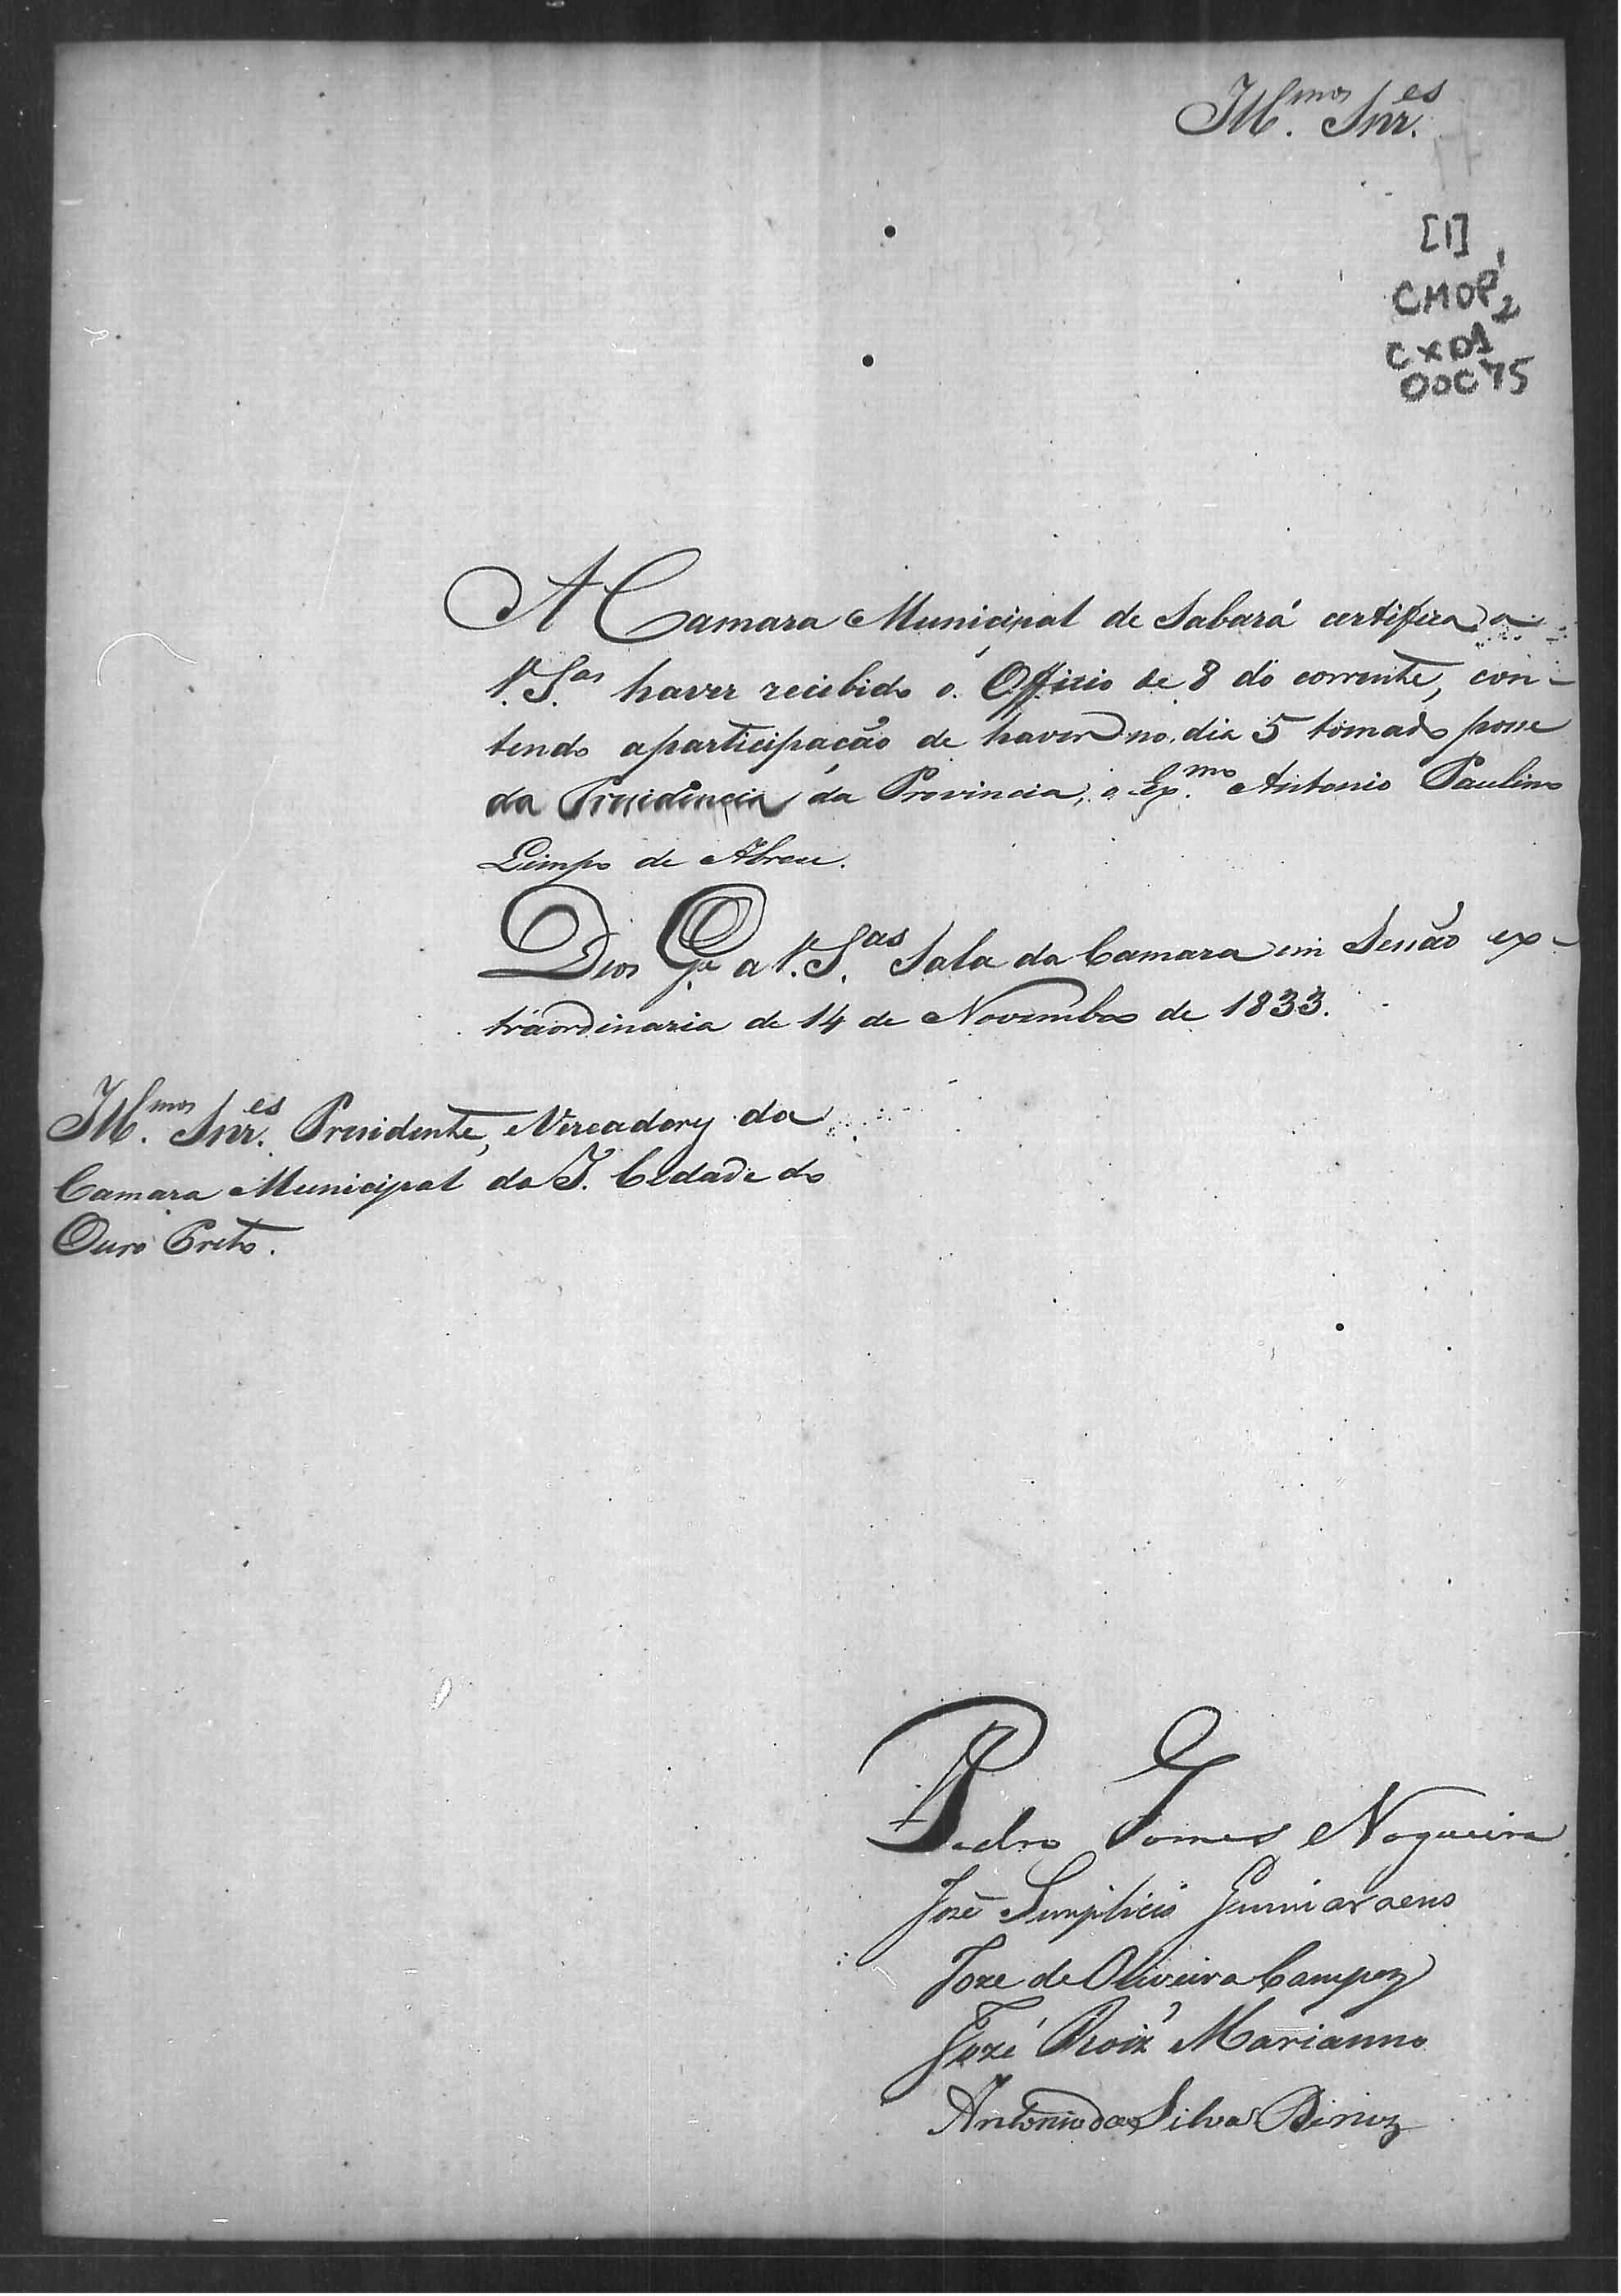 Ill.mos Snr.es
[1]
CMOP 2
CX 01
DOC 75
A Camara Municipal de Sabará certifica a
V. S.as haver recebido o Officio de 8 do corrente, con-
tendo aparticipação de haver no dia 5 tomado posse
da Presidencia da Provincia, o Ex.mo Antonio Paulino
Limpo de Abreu.
Deos G.e a V. S.as Sala da Camara em Sessão ex-
traordinaria de 14 de Novembro de 1833.
Ill.mos Snr.es Presidente, e Vereadores da
Camara Municipal da I. Cidade do
Ouro Preto.
Pedro Gomes Nogueira
José Simplicio Guimaraens
Joze de Oliveira Campos
Jozé Roiz Marianno
Antonio da Silva